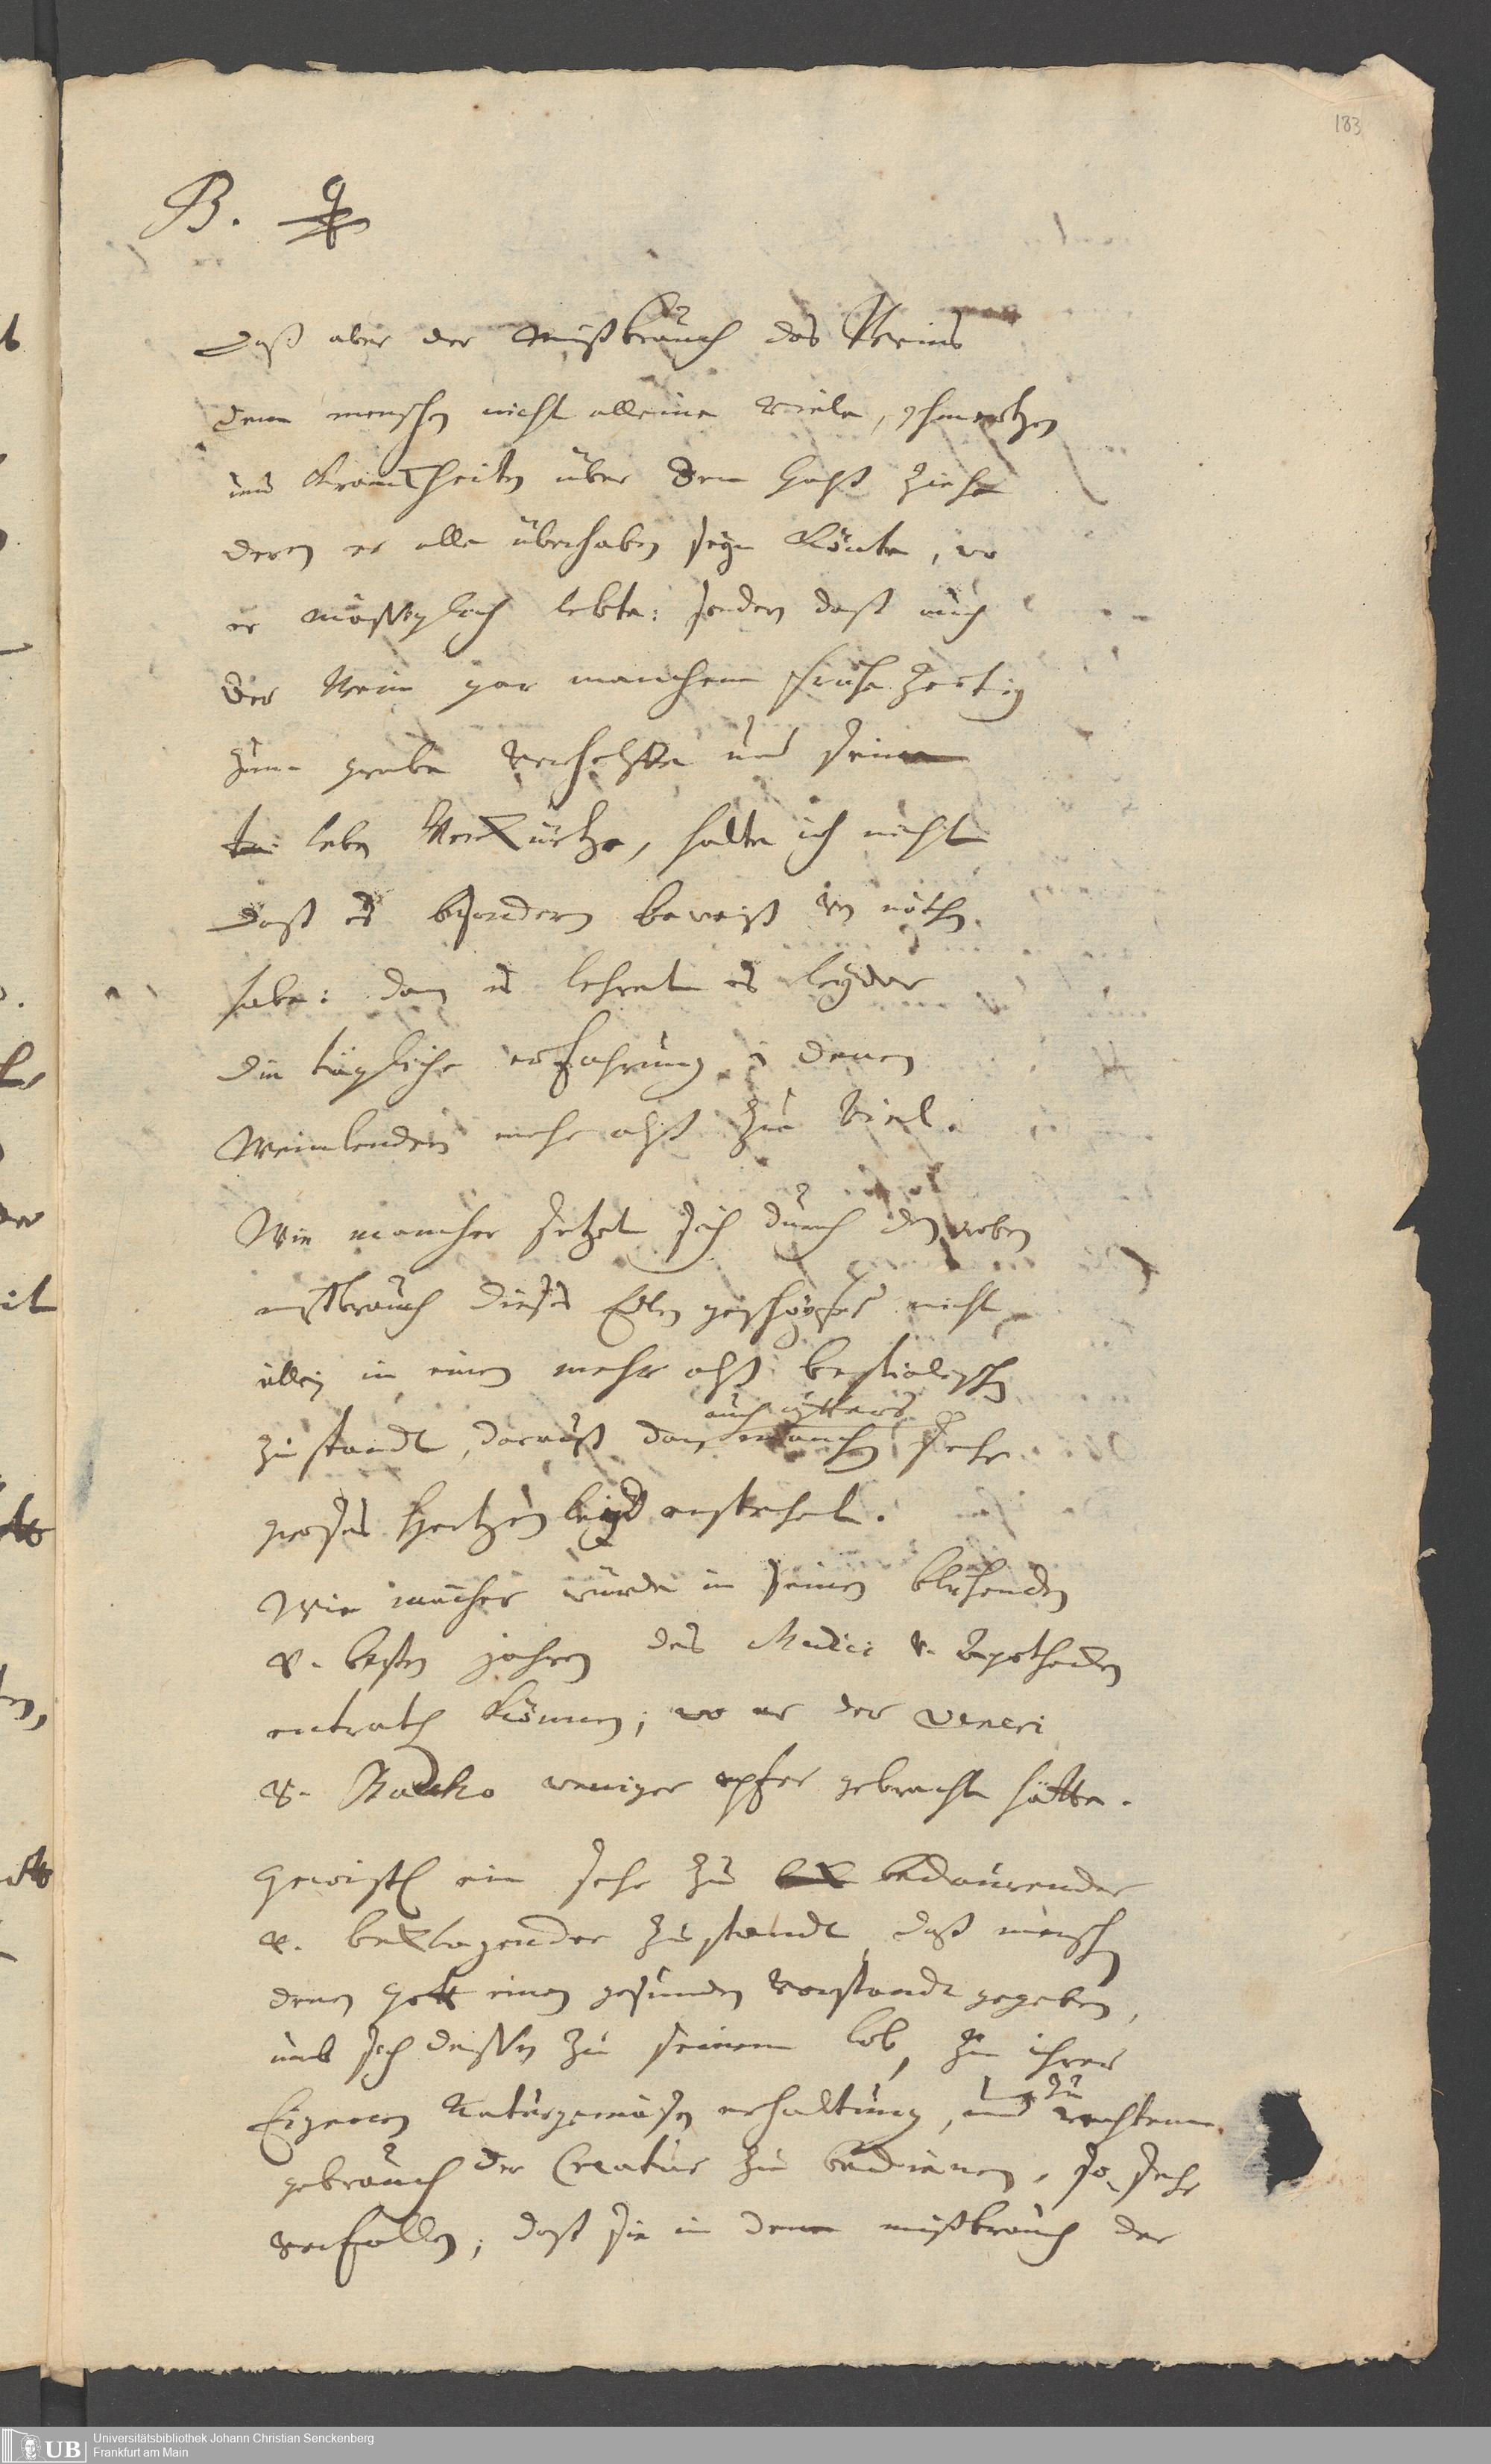 183
B.
Daß aber der Mißbrauch des Weins
dem menschen nicht alleine viele, schmertzen
und Kranckheiten über den Halß ziehe
deren er alle überhaben seyn könte, wo
er mässiglich lebte: sondern daß auch
der Wein gar manchem frühe zeitig
zum grabe verhelffe und sein
leben verkürtze, halte ich nicht
daß es besondern beweiß von nöthen
habe: dann es lehret es leyder
die tägliche erfahrung in denen
Weinlenden mehr alß zu viel.
Wie mancher setzet sich durch den
mißbrauch dieses Edlen geschöpfes nicht
allein in einen mehr alß bestialischen
auch öffters
zustandt, darauß dann manchen sehr
grosses Hertzenleyd entstehet.
Wie mancher würde in seinen blühenden
v. besten jahren des Medici v. Apothecken
entrathen können; wo er der Veneri
v. Baccho weniger opfer gebracht hätte.
Gewißlich ein sehr zu bedaurender
v. beklagender zustandt, daß menschen
denen Gott einen gesunden verstandt gegeben,
umb sich dessen zu seinem lob, zu ihrer
Eigenen Naturgemäsen erhaltung, und zu rechtem
gebrauch der Creatur zu bedienen, so sehr
verfallen; daß sie in dem mißbrauch der
UB Universitätsbibliothek Johann Christian Senckenberg
Frankfurt am Main